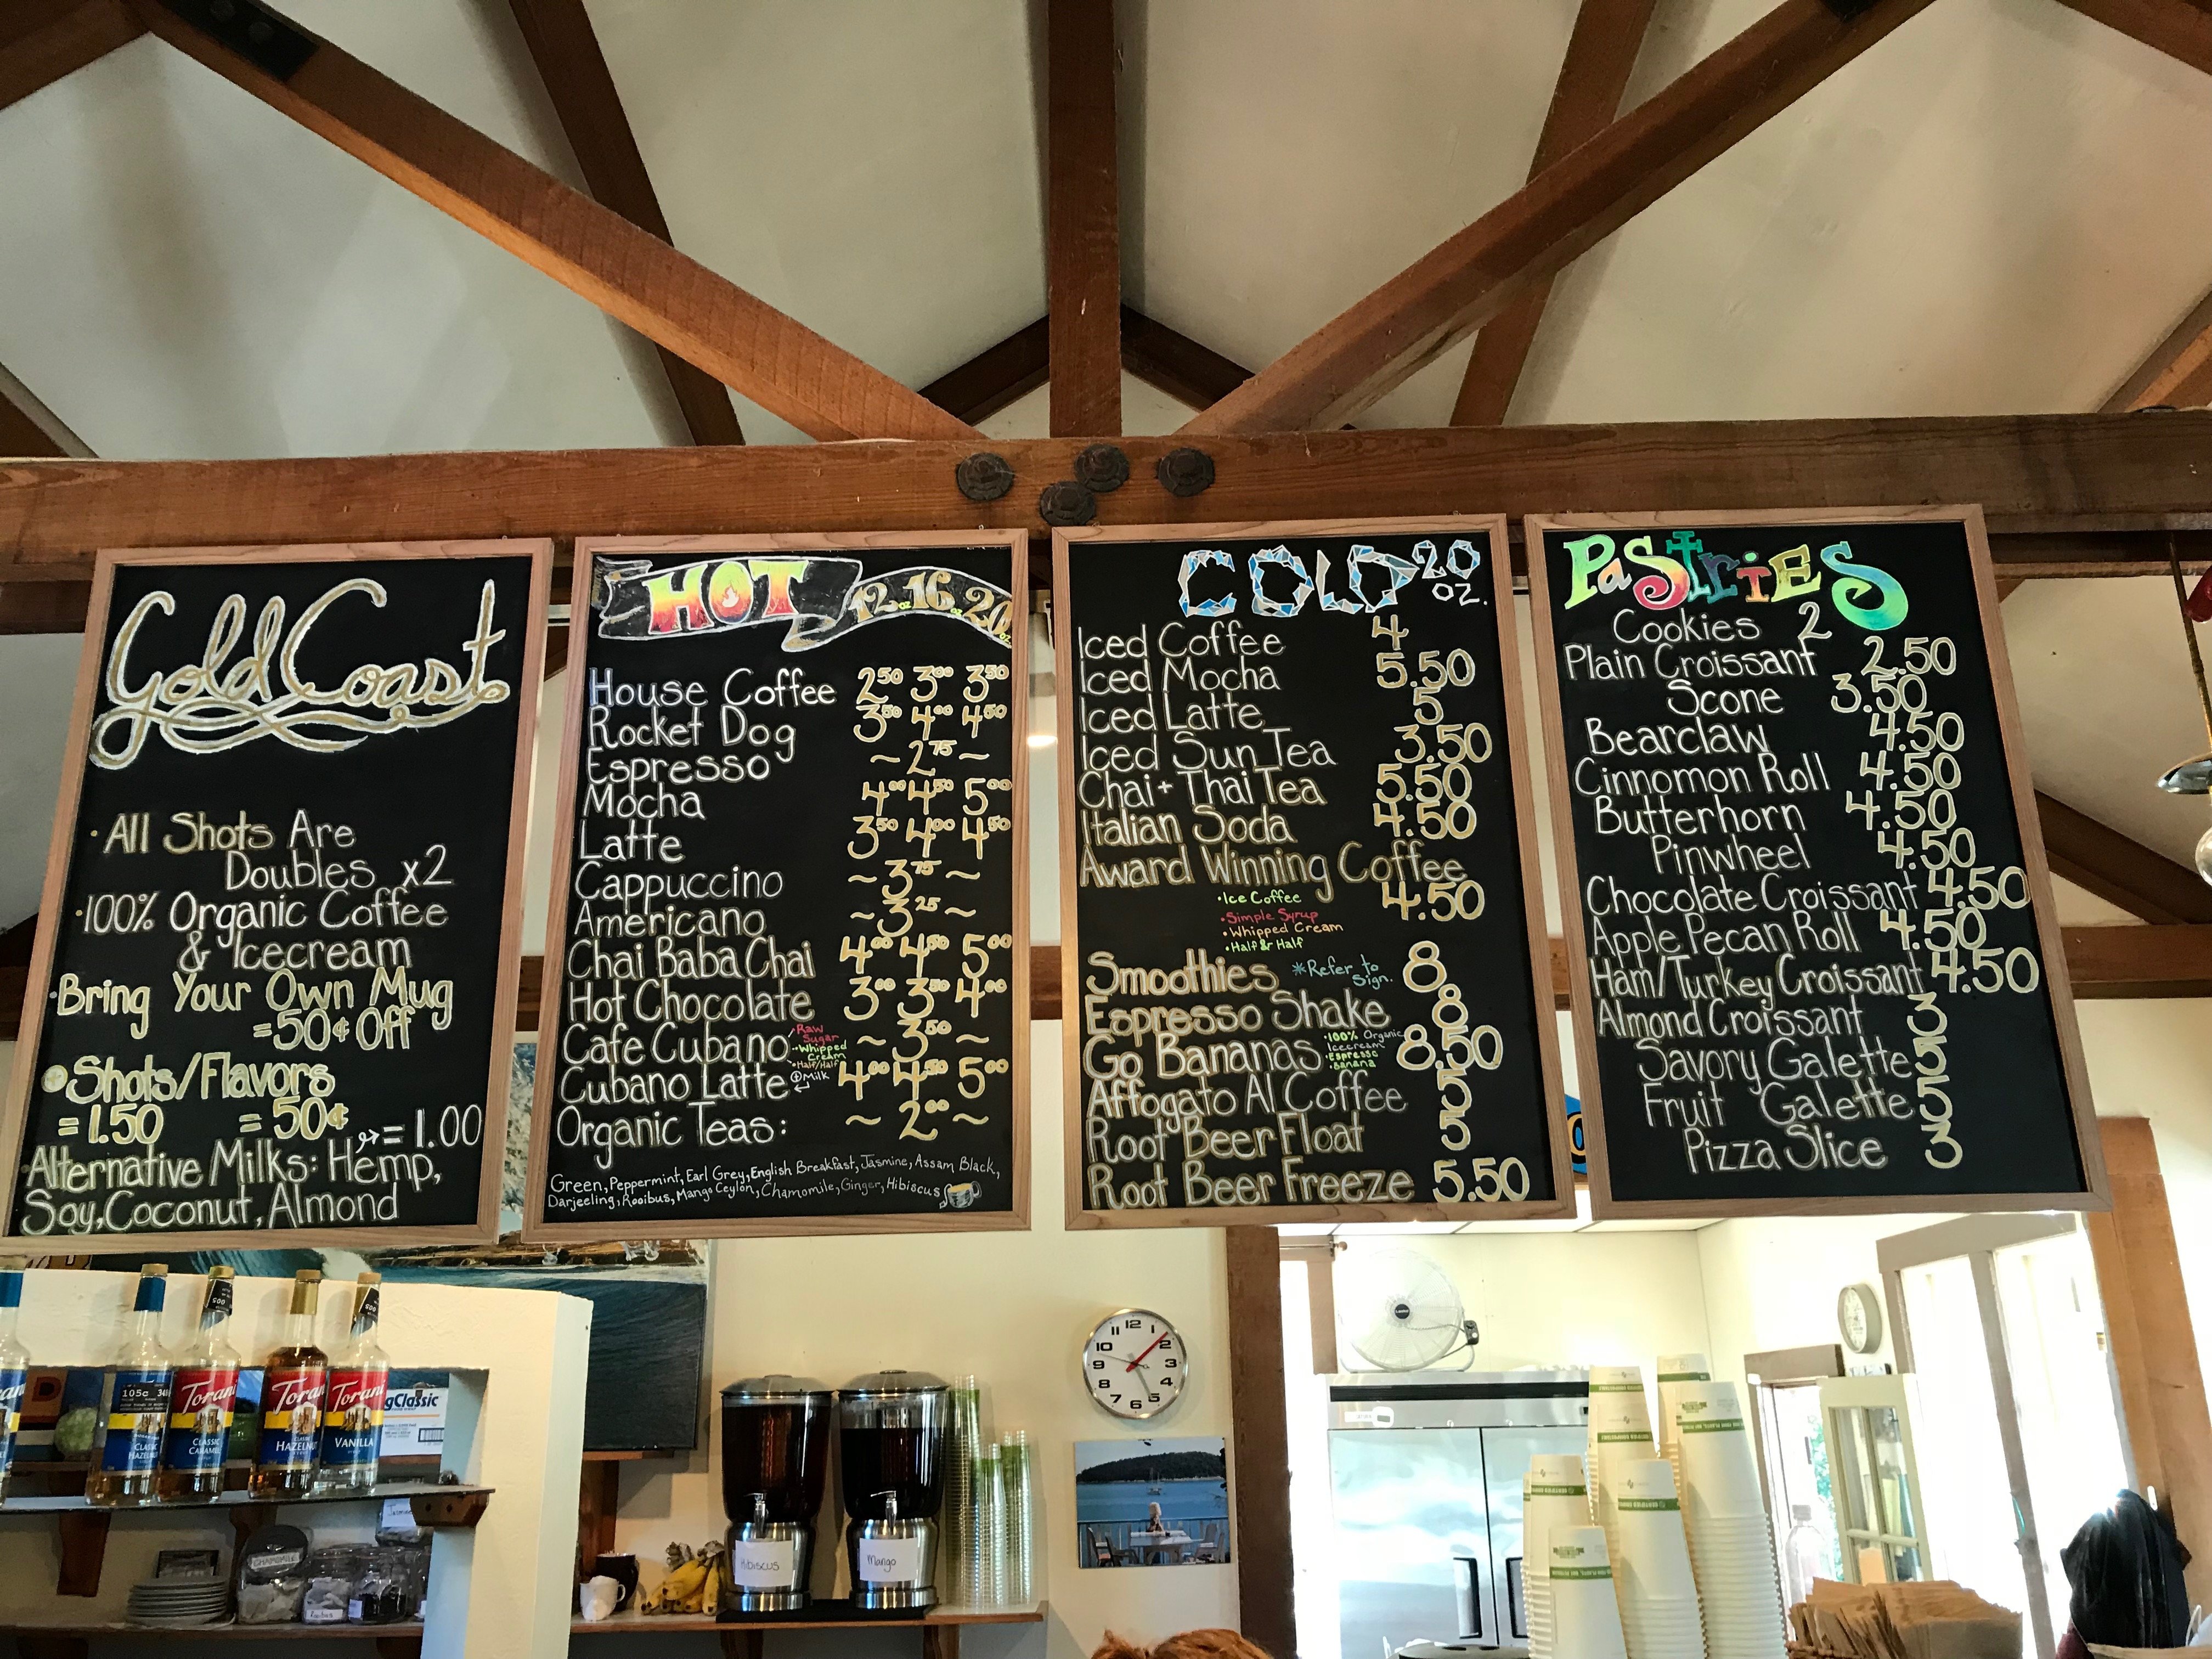 Gold Coast
• All Shots Are
Doubles x2
• 100% Organic Coffee
& Icecream
• Bring Your Own Mug
=50¢ Off
• Shots/Flavors
=1.50 =50¢
=1.00
Alternative Milks: Hemp,
Soy, Coconut, Almond
HOT 12oz 16oz 20oz
House Coffee 2⁵⁰ 3⁰⁰ 3⁵⁰
Rocket Dog 3⁵⁰ 4⁰⁰ 4⁵⁰
Espresso ~2⁷⁵~
Mocha 4⁰⁰ 4⁵⁰ 5⁰⁰
Latte 3⁵⁰ 4⁰⁰ 4⁵⁰
Cappuccino ~3⁷⁵~
Americano ~3²⁵~
Chai Baba Chai 4⁰⁰ 4⁵⁰ 5⁰⁰
Hot Chocolate 3⁰⁰ 3⁵⁰ 4⁰⁰
Cafe Cubano ~3⁵⁰~
Raw
Sugar
Whipped
Cream
Half/Half
Cubano Latte + Milk 4⁰⁰ 4⁵⁰ 5⁰⁰
Organic Teas: ~2⁰⁰~
Green, Peppermint, Earl Grey, English Breakfast, Jasmine, Assam Black,
Darjeeling, Rooibus, Mango Ceylon, Chamomile, Ginger, Hibiscus
COLD 20 oz.
Iced Coffee 4
Iced Mocha 5.50
Iced Latte 5
Iced Sun Tea 3.50
Chai + Thai Tea 5.50
Italian Soda 4.50
Award Winning Coffee
4.50
• Ice Coffee
• Simple Syrup
• Whipped Cream
• Half & Half
Smoothies *Refer to Sign. 8
Espresso Shake 8
Go Bananas 8.50
• 100% Organic
Icecream
• Espresso
• Banana
Affogato Al Coffee 5
Root Beer Float 5
Root Beer Freeze 5.50
PaStriES
Cookies 2
Plain Croissant 2.50
Scone 3.50
Bearclaw 4.50
Cinnomon Roll 4.50
Butterhorn 4.50
Pinwheel 4.50
Chocolate Croissant 4.50
Apple Pecan Roll 4.50
Ham/Turkey Croissant 4.50
Almond Croissant 3
Savory Galette 5
Fruit Galette 5
Pizza Slice 3
105c
Torani
CLASSIC
HAZELNUT
Torani
CLASSIC
CARAMEL
Torani
CLASSIC
HAZELNUT
Torani
VANILLA
gClassic
CHAMOMILE
Rooibus
Hibiscus
Mango
12 1 2 3 4 5 6 7 8 9 10 11